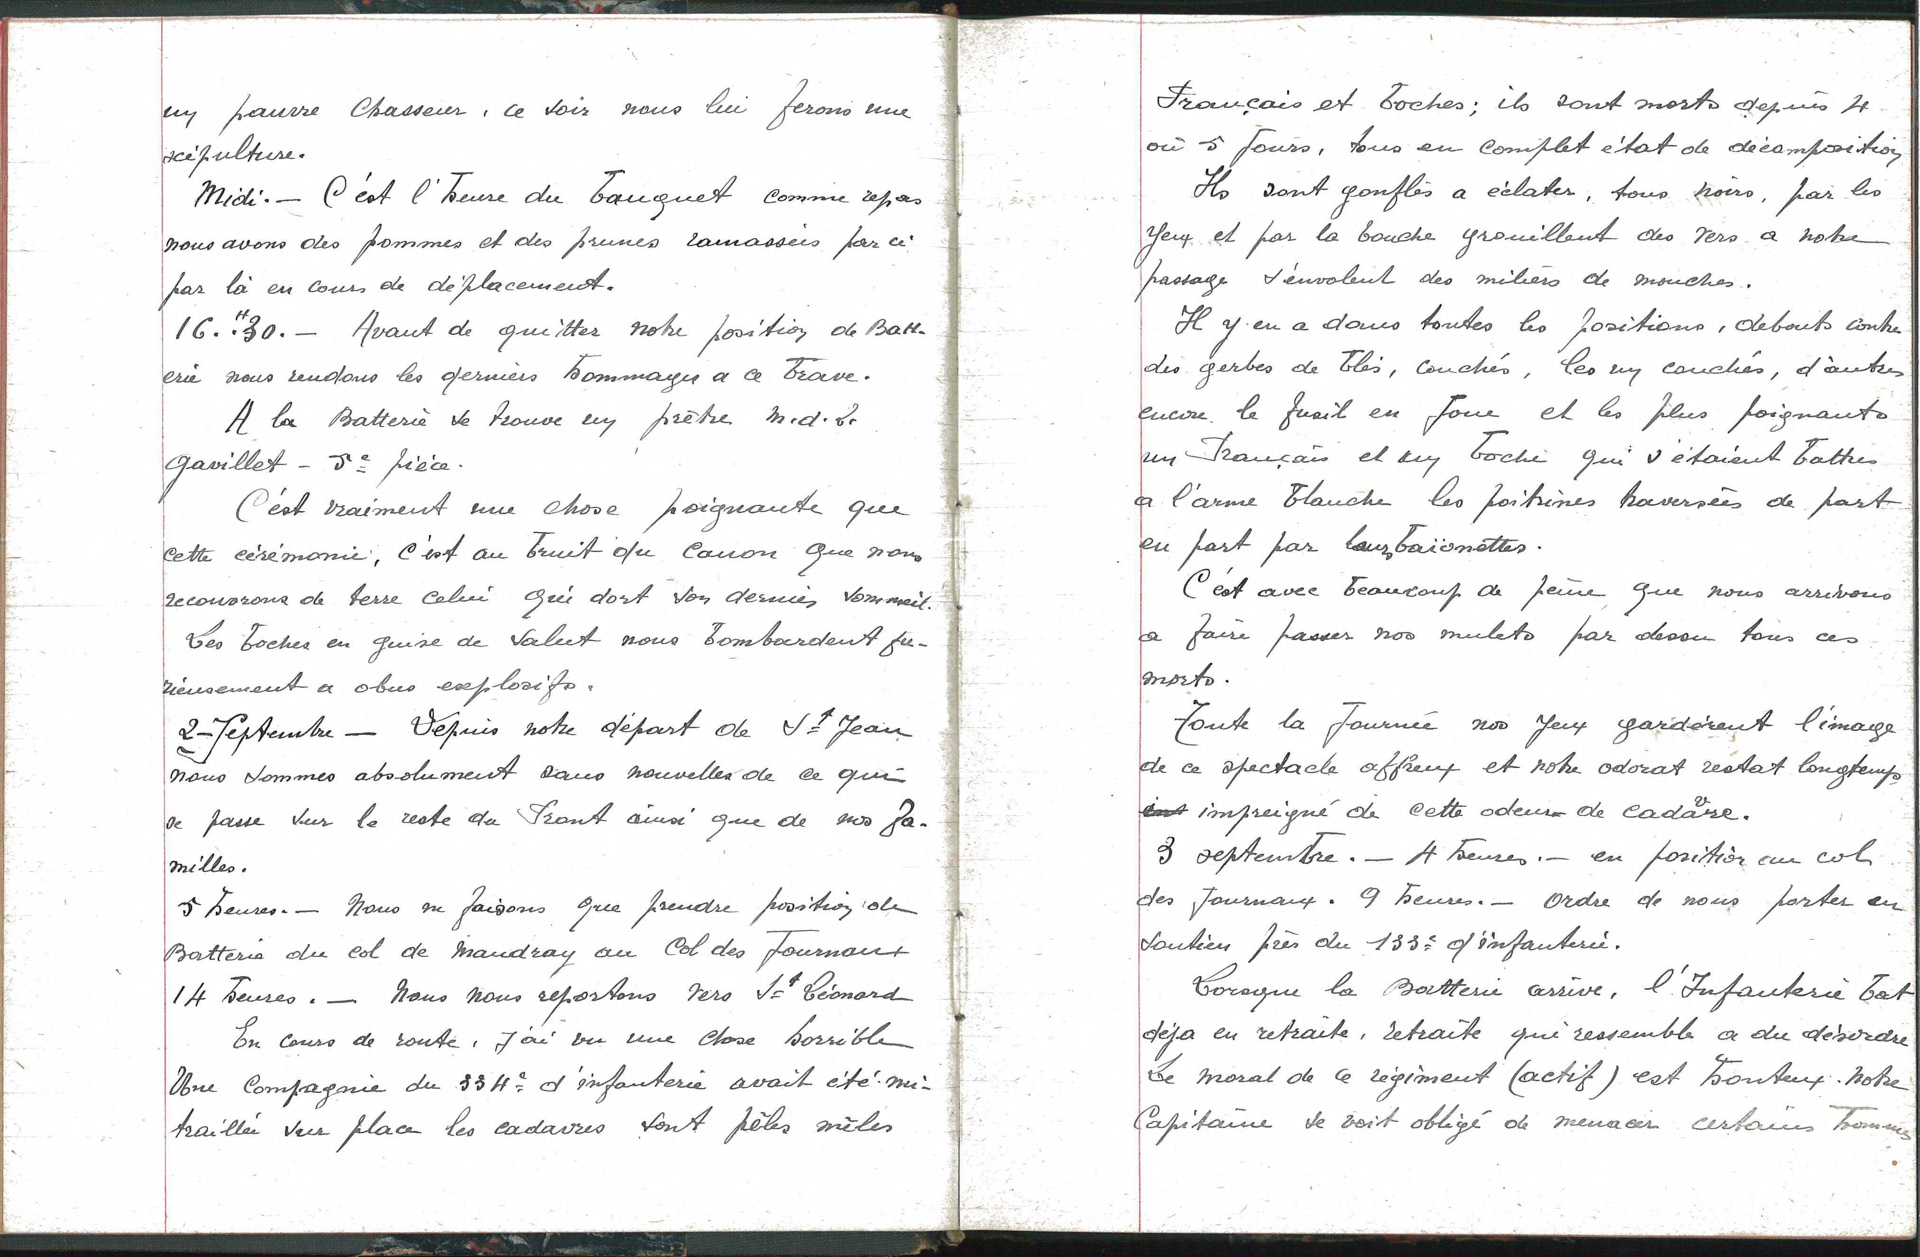 un pauvre Chasseur, ce soir nous lui ferons une
sépulture.
Midi. — C'est l'heure du banquet comme repas
nous avons des pommes et des prunes ramassées par ci
par là en cours de déplacement.
16.H30. — Avant de quitter notre position de Batt-
erie nous rendons les derniers hommages a ce brave.
A la Batterie se trouve un prêtre M.d.L.
Gavillet - 5e pièce.
C'est vraiment une chose poignante que
cette cérémonie, c'est au bruit du canon que nous
recouvrons de terre celui qui dort son dernier sommeil.
Les boches en guise de salut nous bombardent fu-
rieusement a obus explosifs.
2-Septembre — Depuis notre départ de St Jean
nous sommes absolument sans nouvelles de ce qui
se passe sur le reste du Front ainsi que de nos fa-
milles.
5 heures. — Nous ne faisons que prendre position de
Batterie du col de Mandray au Col des Journaux
14 heures. — Nous nous reportons vers St Léonard
En cours de route, j'ai vu une chose horrible
Une Compagnie du 334e d'infanterie avait été mi-
traillée sur place les cadavres sont pêles mêles
Français et boches; ils sont morts depuis 4
où 5 jours, tous en complet état de décomposition
Ils sont gonflés a éclater, tous noirs, par les
yeux et par la bouche grouillent des vers a notre
passage s'envolent des miliers de mouches.
Il y en a dans toutes les positions, debouts contre
des gerbes de blés, couchés, les un couchés, d'autres
encore le fusil en joue et les plus poignants
un Français et un boche qui s'étaient battres
a l'arme blanche les poitrines traversées de part
en part par leurs baïonettes.
C'est avec beaucoup de peine que nous arrivons
a faire passer nos mulets par dessu tous ces
morts.
Toute la journée nos yeux gardèrent l'image
de ce spectacle affreux et notre odorat restat longtemps
impreigné de cette odeur de cadavre.
3 septembre. — 4 heures. — en position au col
des journaux. 9 heures. — Ordre de nous porter en
soutien près du 133e d'infanterie.
Lorsque la Batterie arrive, l'Infanterie bat
déja en retraite, retraite qui ressemble a du désordre
Le moral de ce régiment (actif) est honteux. Notre
Capitaine se voit obligé de menacer certains hommes